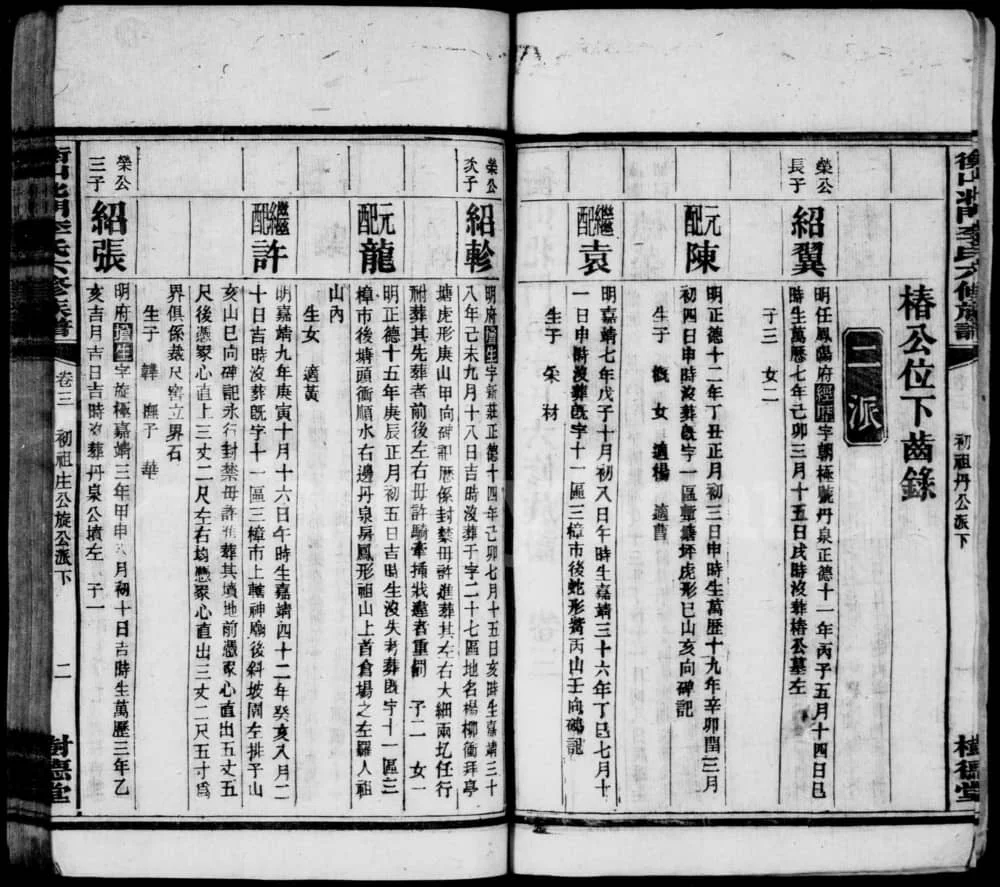 衡山北門李氏六修族譜
初祖丹公派下
一
樹德堂
椿公位下齒錄
二派
榮公長子
紹翼
明任鳳陽府經歷字朝極號丹泉正德十一年丙子五月十四日巳
時生萬歷七年己卯三月十五日戌時沒葬椿公墓左
子三 女二
元配陳
明正德十二年丁丑正月初三日申時生萬歷十九年辛卯閏三月
初四日申時沒葬旣字一區董塘坪虎形巳山亥向碑記
生子 概 女 適楊 適舊
繼配袁
明嘉靖七年戊子十月初入日午時生嘉靖三十六年丁巳七月十
一日申時沒葬旣字十一區三樟市後蛇形獅丙山壬向碣記
生子 榮 材
榮公次子
紹軫
明府庠生字新莊正德十四年己卯七月十五日亥時生嘉靖三十
八年己未九月十八日吉時沒葬子字二十七區地名楊柳衝拜亭
塘虎形庚山甲向碑記歷係封禁毋許進葬其左右大細兩圪任行
祔葬其先葬者前後左右毋許騎牽插戕違者重罰 子二 女一
元配龍
明正德十五年庚辰正月初五日吉時生沒失考葬旣字十一區三
樟市後塘頭衝順水右邊丹泉房鳳形祖山上首倉場之左羅人祖
山內
生女 適黃
繼配許
明嘉靖九年庚寅十月十六日午時生嘉靖四十二年癸亥入月二
十日吉時沒葬旣字十一區三樟市上轄神廟後斜坡園左排子山
亥山巳向碑記永行封禁毋許祖葬其墳地前憑冢心直出五丈五
尺後憑冢心直上三丈二尺左右均憑冢心直出三丈二尺五寸爲
界俱係蒸尺窖立界石
生子 韡 撫子 華
榮公三子
紹張
明府庠生字旋極嘉靖三年甲申 月初十日吉時生萬歷三年乙
亥吉月吉日吉時沒葬丹泉公墳左 子一
衡山北門李氏六修族譜
卷三
初祖庄公旋公派下
二
樹德堂